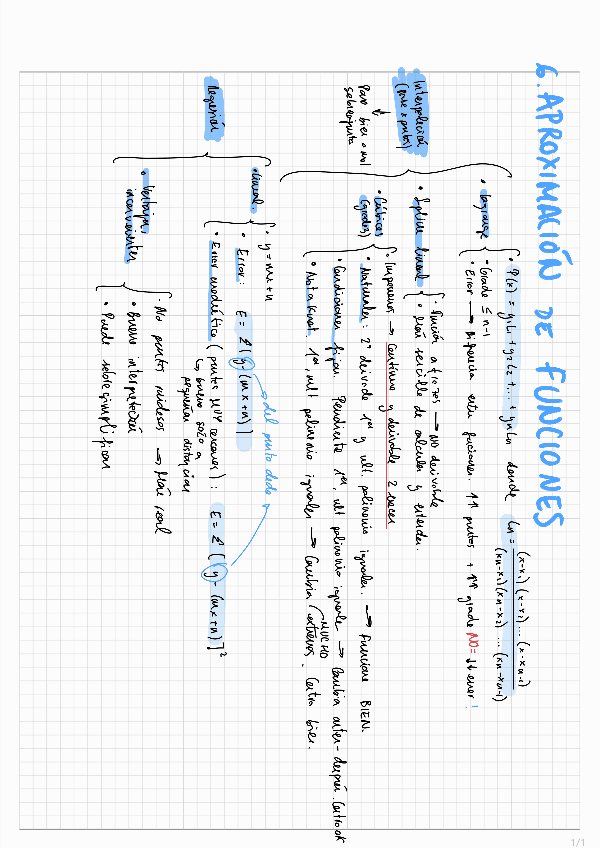 6. APROXIMACIÓN DE FUNCIONES
Interpolación
(pase x puntos)
↓
Para bien o mal
sobreajusta
• Lagrange
• P(x) = y₁L₁ + y₂L₂ + ... + yₙLₙ donde Lₙ = (x-x₁)(x-x₂)...(x-xₙ₋₁) / (xₙ-x₁)(xₙ-x₂)...(xₙ-xₙ₋₁)
- Grado ≤ n-1
• Error → Diferencia entre funciones. ↑↑ puntos + ↑↑ grado NO= ↓↓ error!
• Spline lineal
• Función a trozos → NO derivable
• Más sencillo de calcular y entender.
• Cúbicos
(grados)
• Imponemos → continuo y derivable 2 veces
• Naturales: 2ª derivada 1er y ult. polinomio iguales. → Funciona BIEN.
• Condiciones fijas. Pendiente 1er, ult polinomio iguales → Cambia antes-después. Centro ok
• Not a knot. 1er, ult polinomio iguales → Cambia MUCHO extremos. Centro bien.
Regresión
• Lineal.
• y = mx + n
• Error: E = Σ(y - (mx+n))
del punto dado
• Error cuadrático (puntos MUY cercanos): E = Σ[(y - (mx+n)]²
↳ bueno solo a
pequeñas distancias
• Ventajas,
inconvenientes
• No puntos ruidosos → Más real
• Buena interpretación
• Puede sobresimplificar
1/1